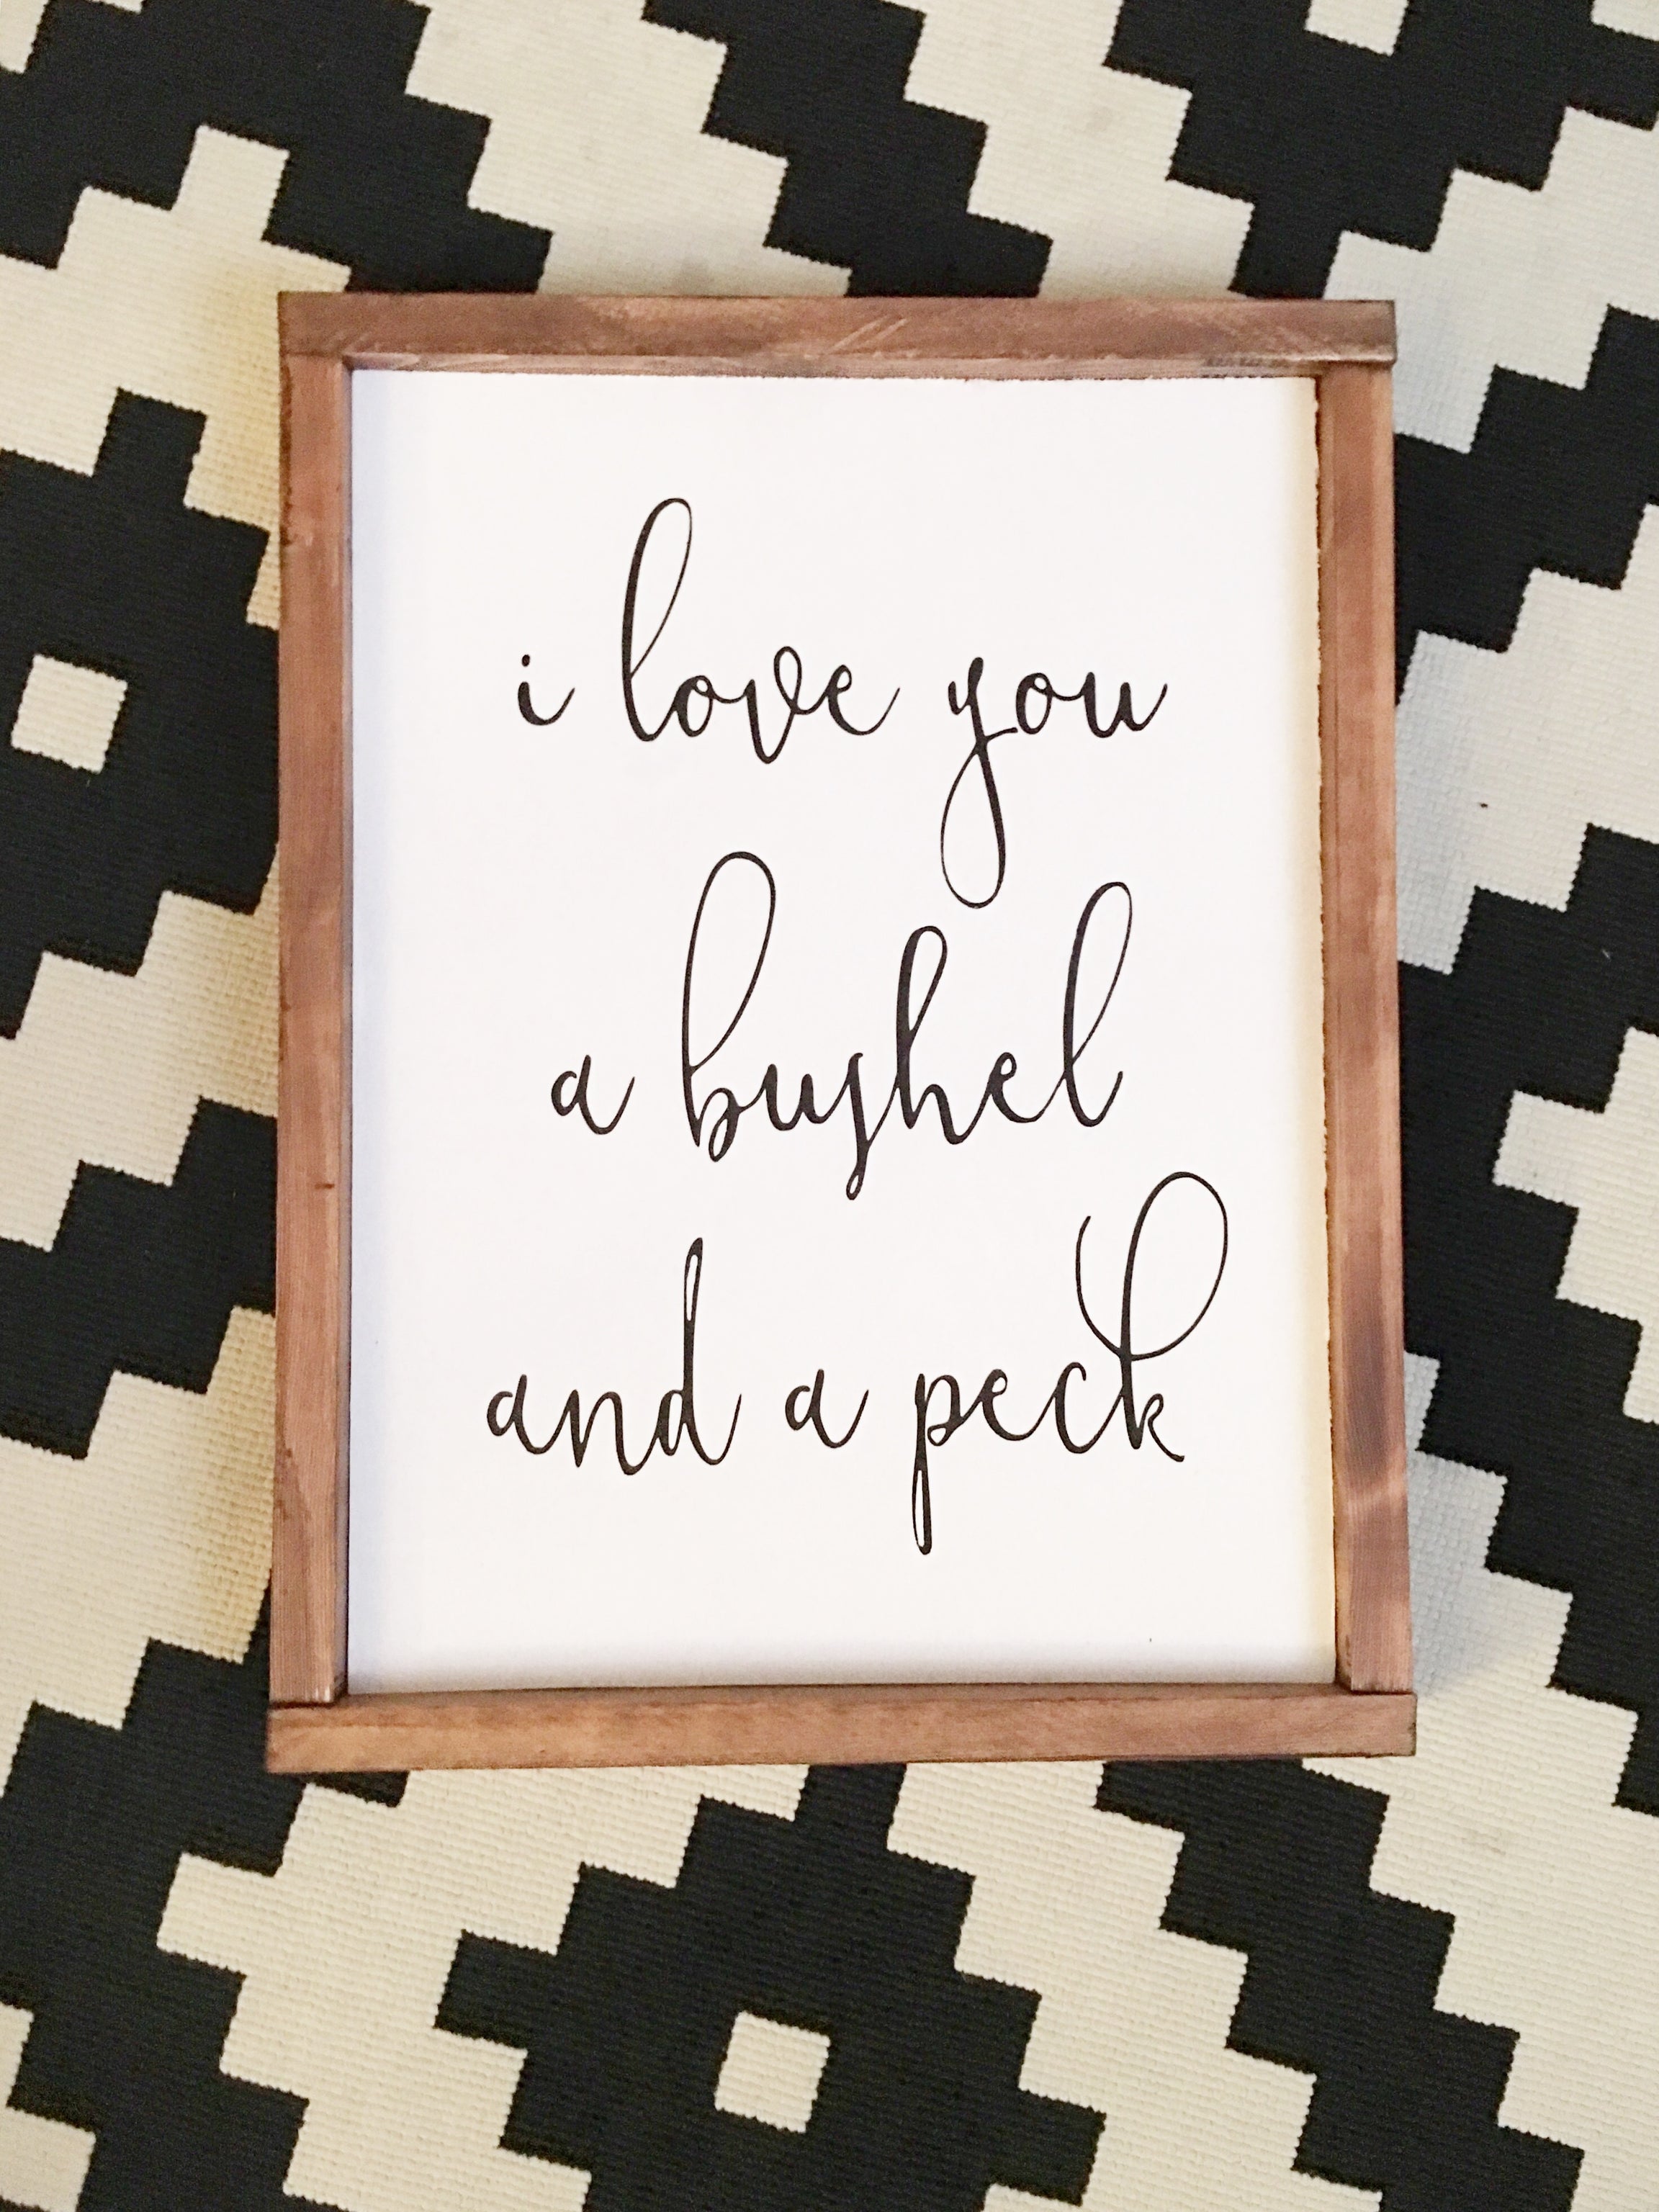 i love you
a bushel
and a peck